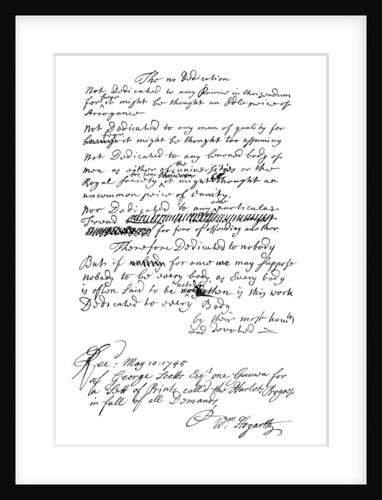 The no Dedication
Not Dedicated to any Prince in Christendom
for fear it might be thought an Idle piece of
Arrogance
Not Dedicated to any man of quality for
fear it might be thought too assuming
Not Dedicated to any learned body of
men as either of the universities or the
Royal Society for fear it might be thought an
uncommon piece of Vanity.
Nor Dedicated to any one particular
Friend
for fear of offending another.
Therefore Dedicated to nobody
But if for once we may suppose
nobody to be every body as Every body
is often said to be nobody then is this work
Dedicated to every Body
by their most humble
and devoted
Rec.d May 10: 1745
of George Scott Esq.r one Guinea for
a Sett of Prints called the Harlots Progress
in full of all Demands,
W.m Hogarth